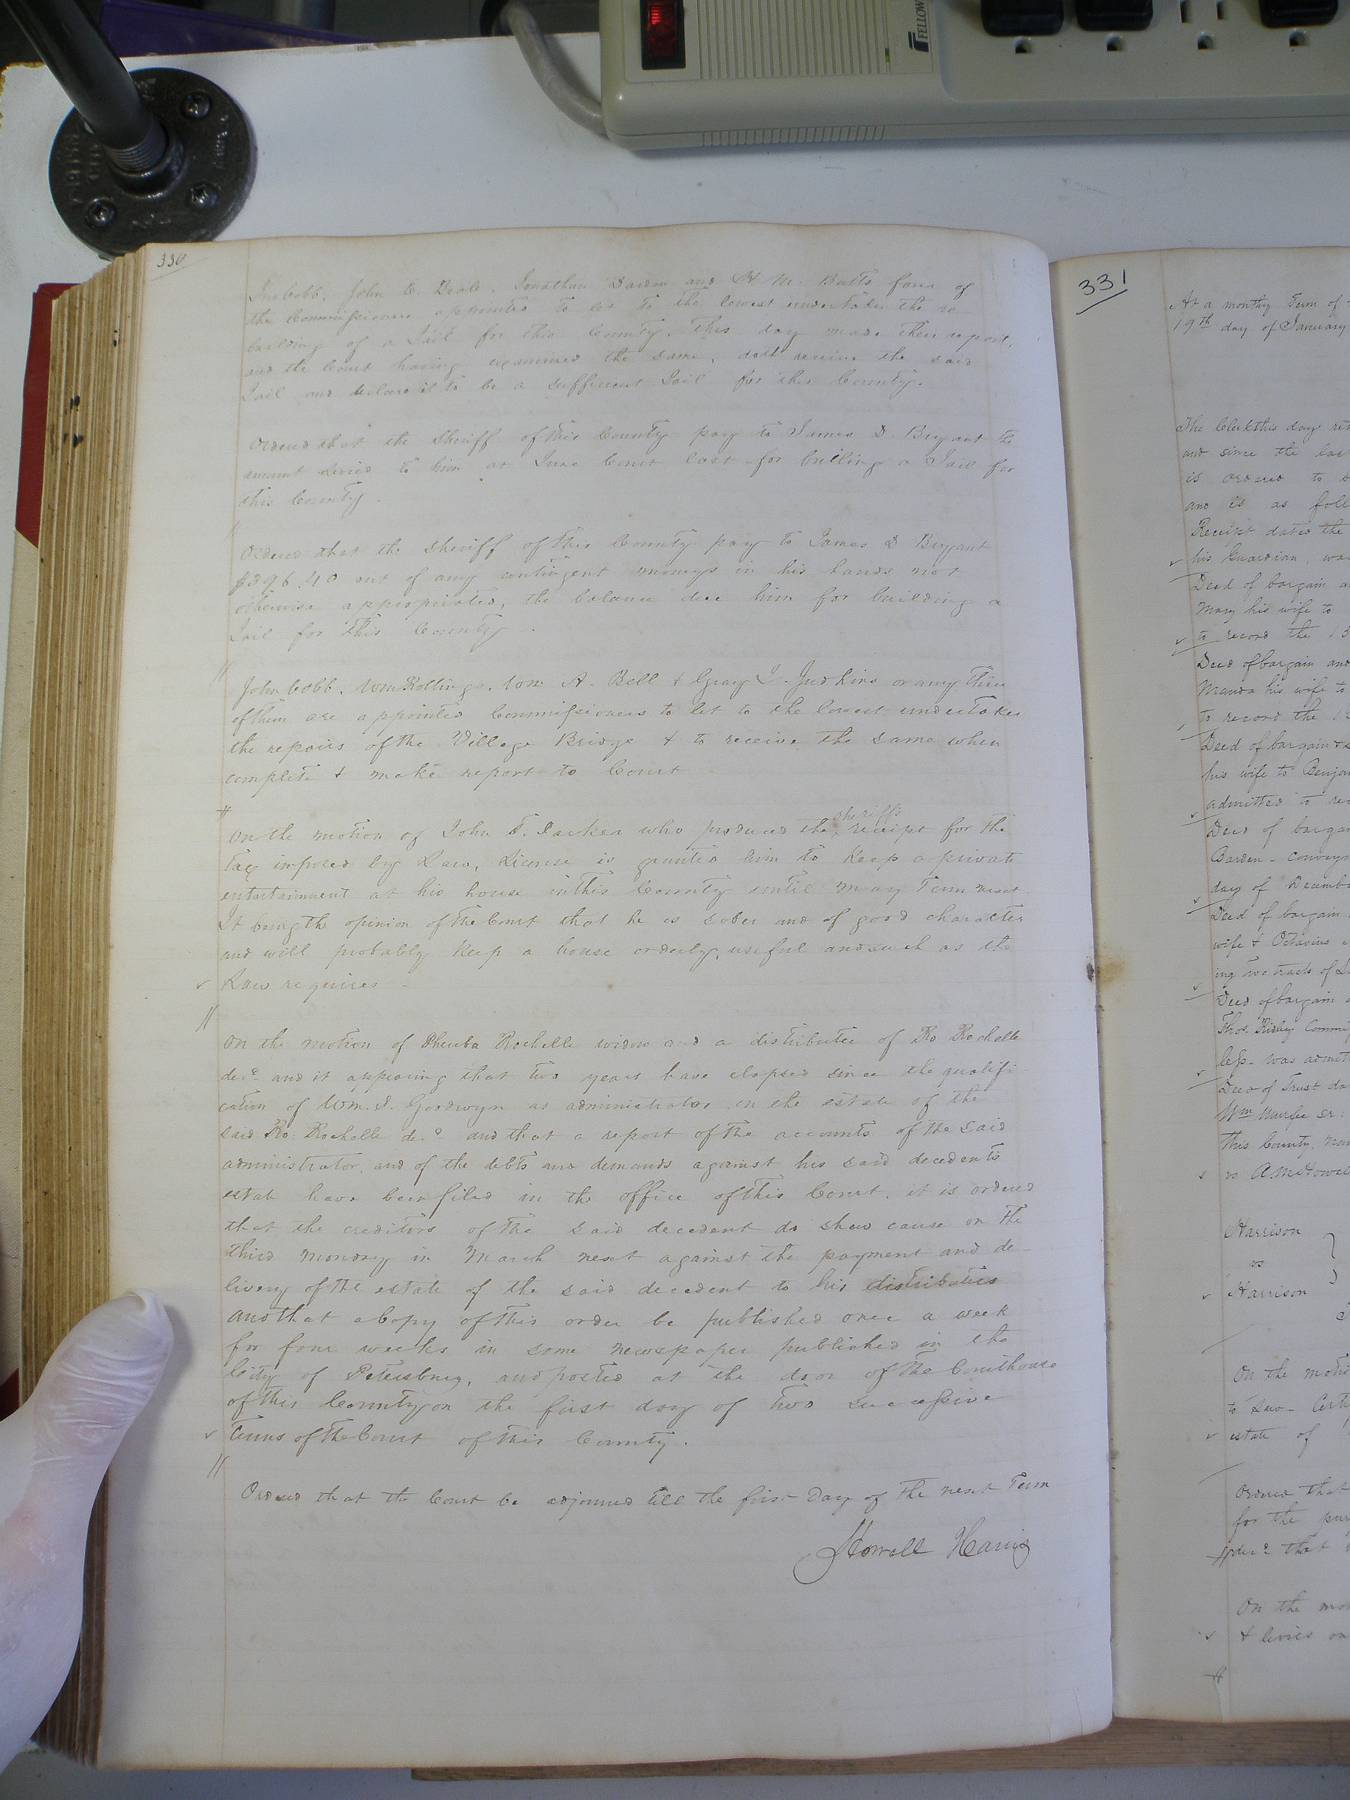 FELLOW
330
Jno Cobb, John C. Deale, Jonathan Darden and H. M. Butts four of
the Commissioners appointed to let to the lowest undertaker the re-
building of a Jail for this County, this day made their report,
and the Court having examined the same, doth receive the said
Jail and declare it to be a sufficient Jail for this County.
Ordered that the Sheriff of this County pay to James D. Bryant the
amount levied to him at June Court last for building a Jail for
this County.
Ordered that the Sheriff of this County pay to James D Bryant
$396.40 out of any contingent moneys in his hands not
otherwise appropriated, the balance due him for building a
Jail for this County.
John Cobb, Wm Rollings, Wm A. Bell & Gray L. Judkins or any three
of them are appointed Commissioners to let to the lowest undertaker
the repairs of the Village Bridge & to receive the same when
complete & make report to Court
sheriffs
On the motion of John T. Parker who produced the receipt for the
tax imposed by Law, License is granted him to keep a private
entertainment at his house in this County until May Term next
It being the opinion of the Court that he is sober and of good character
and will probably keep a house orderly, useful and such as the
Law requires -
On the motion of Pheuba Rochelle widow and a distributee of Ro Rochelle
decd. and it appearing that two years have elapsed since the qualifi-
cation of Wm. S. Goodwyn as administrator on the estate of the
said Ro. Rochelle decd and that a report of the accounts of the said
administrator, and of the debts and demands against his said decedents
estate have been filed in the office of this Court, it is ordered
that the creditors of the said decedent do shew cause on the
third monday in March next against the payment and de-
livery of the estate of the said decedent to his distributees
and that a Copy of this order be published once a week
for four weeks in some newspaper published in the
City of Petersburg, and posted at the door of the Courthouse
of this County on the first day of two successive
Terms of the Court of this County.
Ordered that the Court be adjourned till the first Day of the next Term
Howell Harris
331
At a monthly Term of
19th day of January
The Clerk this day
and since the las
is ordered to
and is as foll
Receipt dated the
his Guardian, wa
Deed of bargain a
Mary his wife to
to record the 13
Deed of bargain and
his wife to
to record the 13
Deed of bargain &
his wife to Benjam
admitted to re
Deed of barga
Barden - convey
day of Decembe
Deed of bargain
wife & Octavius
ing two tracts of L
Deed of bargain
Thos. Ridley Commi
less - was admit
Deed of Trust da
Wm Murfee Sr.
this County,
vs A. McHowel
Harrison
vs
Harrison
On the moti
to Leo - Certi
estate of
Ordered that
for the pur
decd that
On the mo
& levies on